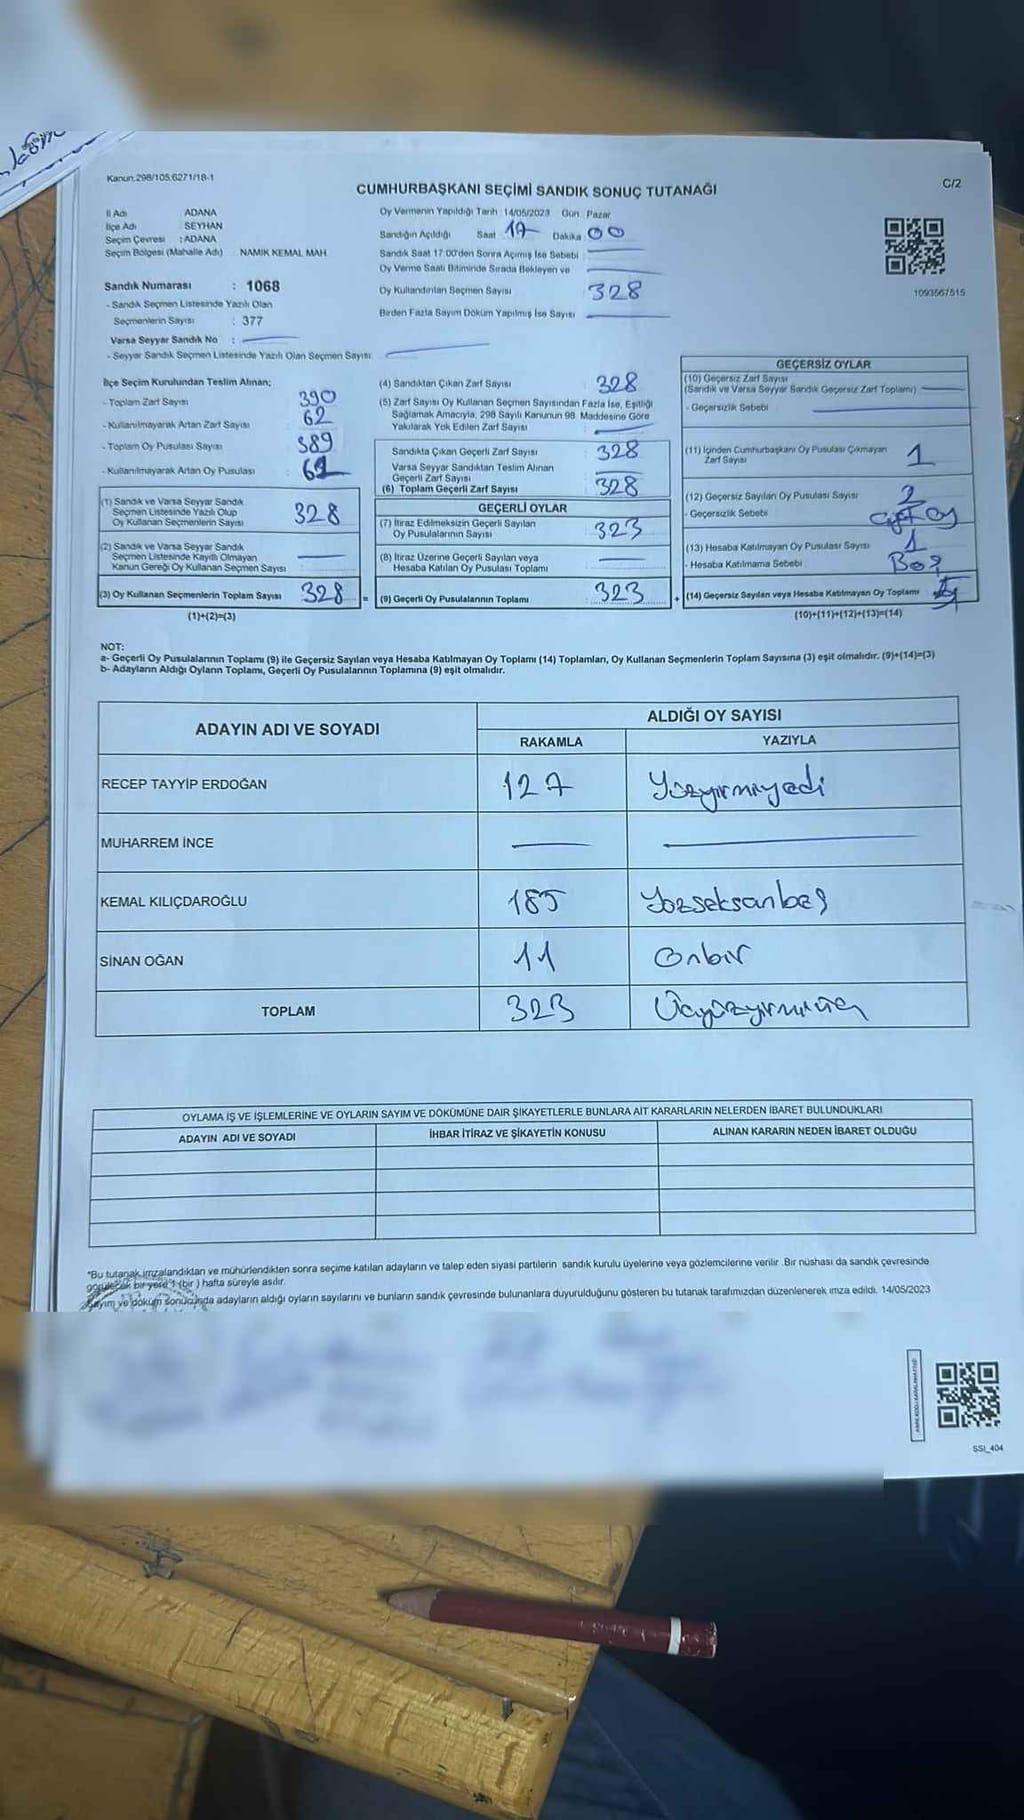 Kanun.298/105,6271/18-1
CUMHURBAŞKANI SEÇİMİ SANDIK SONUÇ TUTANAĞI
C/2
İl Adı ADANA
İlçe Adı SEYHAN
Seçim Çevresi : ADANA
Seçim Bölgesi (Mahalle Adı) NAMIK KEMAL MAH
Oy Vermenin Yapıldığı Tarih 14/05/2023 Gün Pazar
Sandığın Açıldığı Saat 17 Dakika 00
Sandık Saat 17:00'den Sonra Açımış İse Sebebi
Oy Verme Saati Bitiminde Sırada Bekleyen ve
Oy Kullandırılan Seçmen Sayısı 328
Birden Fazla Sayım Döküm Yapılmış İse Sayısı
1093567515
Sandık Numarası : 1068
- Sandık Seçmen Listesinde Yazılı Olan
Seçmenlerin Sayısı : 377
Varsa Seyyar Sandık No :
- Seyyar Sandık Seçmen Listesinde Yazılı Olan Seçmen Sayısı:
İlçe Seçim Kurulundan Teslim Alınan;
- Toplam Zarf Sayısı 390
- Kullanılmayarak Artan Zarf Sayısı 62
- Toplam Oy Pusulası Sayısı 389
- Kullanılmayarak Artan Oy Pusulası
(1) Sandık ve Varsa Seyyar Sandık
Seçmen Listesinde Yazılı Olup
Oy Kullanan Seçmenlerin Sayısı 328
(2) Sandık ve Varsa Seyyar Sandık
Seçmen Listesinde Kayıtlı Olmayan
Kanun Gereği Oy Kullanan Seçmen Sayısı
(3) Oy Kullanan Seçmenlerin Toplam Sayısı 328 =
(1)+(2)=(3)
(4) Sandıktan Çıkan Zarf Sayısı 328
(5) Zarf Sayısı Oy Kullanan Seçmen Sayısından Fazla İse, Eşitliği
Sağlamak Amacıyla, 298 Sayılı Kanunun 98. Maddesine Göre
Yakılarak Yok Edilen Zarf Sayısı
Sandıkta Çıkan Geçerli Zarf Sayısı 328
Varsa Seyyar Sandıktan Teslim Alınan
Geçerli Zarf Sayısı
(6) Toplam Geçerli Zarf Sayısı 328
GEÇERLİ OYLAR
(7) İtiraz Edilmeksizin Geçerli Sayılan
Oy Pusulalarının Sayısı 323
(8) İtiraz Üzerine Geçerli Sayılan veya
Hesaba Katılan Oy Pusulası Toplamı
(9) Geçerli Oy Pusulalarının Toplamı 323 +
GEÇERSİZ OYLAR
(10) Geçersiz Zarf Sayısı
(Sandık ve Varsa Seyyar Sandık Geçersiz Zarf Toplamı)
- Geçersizlik Sebebi
(11) İçinden Cumhurbaşkanı Oy Pusulası Çıkmayan
Zarf Sayısı 1
(12) Geçersiz Sayılan Oy Pusulası Sayısı 2
- Geçersizlik Sebebi Çift oy
(13) Hesaba Katılmayan Oy Pusulası Sayısı 1
- Hesaba Katılmama Sebebi Boş
(14) Geçersiz Sayılan veya Hesaba Katılmayan Oy Toplamı
(10)+(11)+(12)+(13)=(14)
NOT:
a- Geçerli Oy Pusulalarının Toplamı (9) ile Geçersiz Sayılan veya Hesaba Katılmayan Oy Toplamı (14) Toplamları, Oy Kullanan Seçmenlerin Toplam Sayısına (3) eşit olmalıdır. (9)+(14)=(3)
b- Adayların Aldığı Oyların Toplamı, Geçerli Oy Pusulalarının Toplamına (9) eşit olmalıdır.
ADAYIN ADI VE SOYADI ALDIĞI OY SAYISI
RAKAMLA YAZIYLA
RECEP TAYYİP ERDOĞAN 127 Yüzyirmiyedi
MUHARREM İNCE
KEMAL KILIÇDAROĞLU 185 Yüzseksanbeş
SİNAN OĞAN 11 Onbir
TOPLAM 323 Üçyüzyirmiüç
OYLAMA İŞ VE İŞLEMLERİNE VE OYLARIN SAYIM VE DÖKÜMÜNE DAİR ŞİKAYETLERLE BUNLARA AİT KARARLARIN NELERDEN İBARET BULUNDUKLARI
ADAYIN ADI VE SOYADI İHBAR İTİRAZ VE ŞİKAYETİN KONUSU ALINAN KARARIN NEDEN İBARET OLDUĞU
*Bu tutanak imzalandıktan ve mühürlendikten sonra seçime katılan adayların ve talep eden siyasi partilerin sandık kurulu üyelerine veya gözlemcilerine verilir. Bir nüshası da sandık çevresinde
görülecek bir yere 1 (bir) hafta süreyle asılır.
Sayım ve döküm sonucunda adayların aldığı oyların sayılarını ve bunların sandık çevresinde bulunanlara duyurulduğunu gösteren bu tutanak tarafımızdan düzenlenerek imza edildi. 14/05/2023
SSI_404